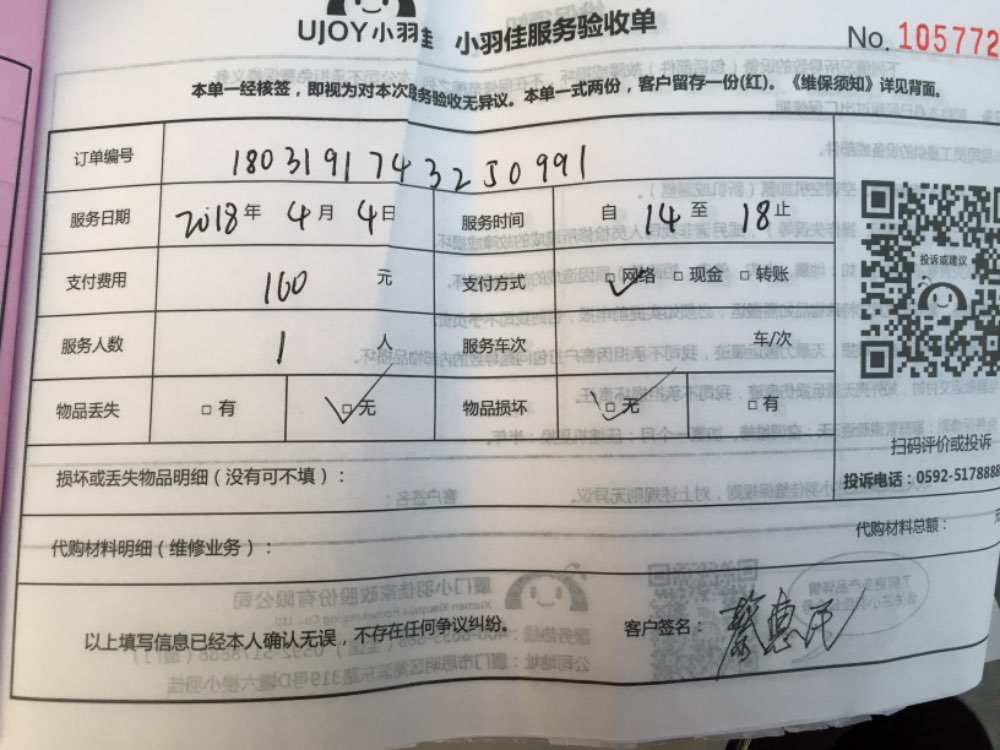 UJOY小羽佳 小羽佳服务验收单 No. 105772
本单一经核签，即视为对本次服务验收无异议。本单一式两份，客户留存一份(红)。《维保须知》详见背面。
订单编号 18031917432J0991
服务日期 2018年 4月 4日 服务时间 自 14 至 18止
支付费用 160 元 支付方式 □网络 □现金 □转账
投诉或建议
服务人数 1 人 服务车次 车/次
物品丢失 □有 □无 物品损坏 □无 □有
扫码评价或投诉
损坏或丢失物品明细（没有可不填）：
投诉电话：0592-5178888
代购材料明细（维修业务）： 代购材料总额：
以上填写信息已经本人确认无误，不存在任何争议纠纷。 客户签名：蔡惠民